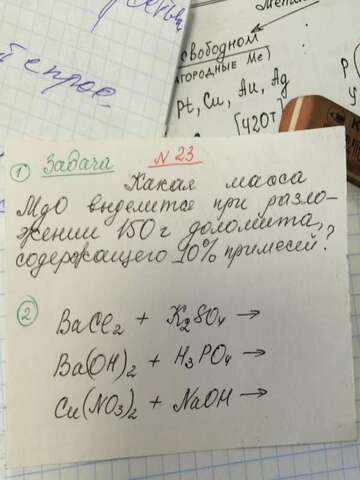 свободном
Pt, Cu, Au, Ag
[420т]
① Задача N 23
Какая масса
MgO выделится при разло-
жении 150 г доломита,
содержащего 10% примесей?
②
BaCl₂ + K₂SO₄ →
Ba(OH)₂ + H₃PO₄ →
Cu(NO₃)₂ + NaOH →